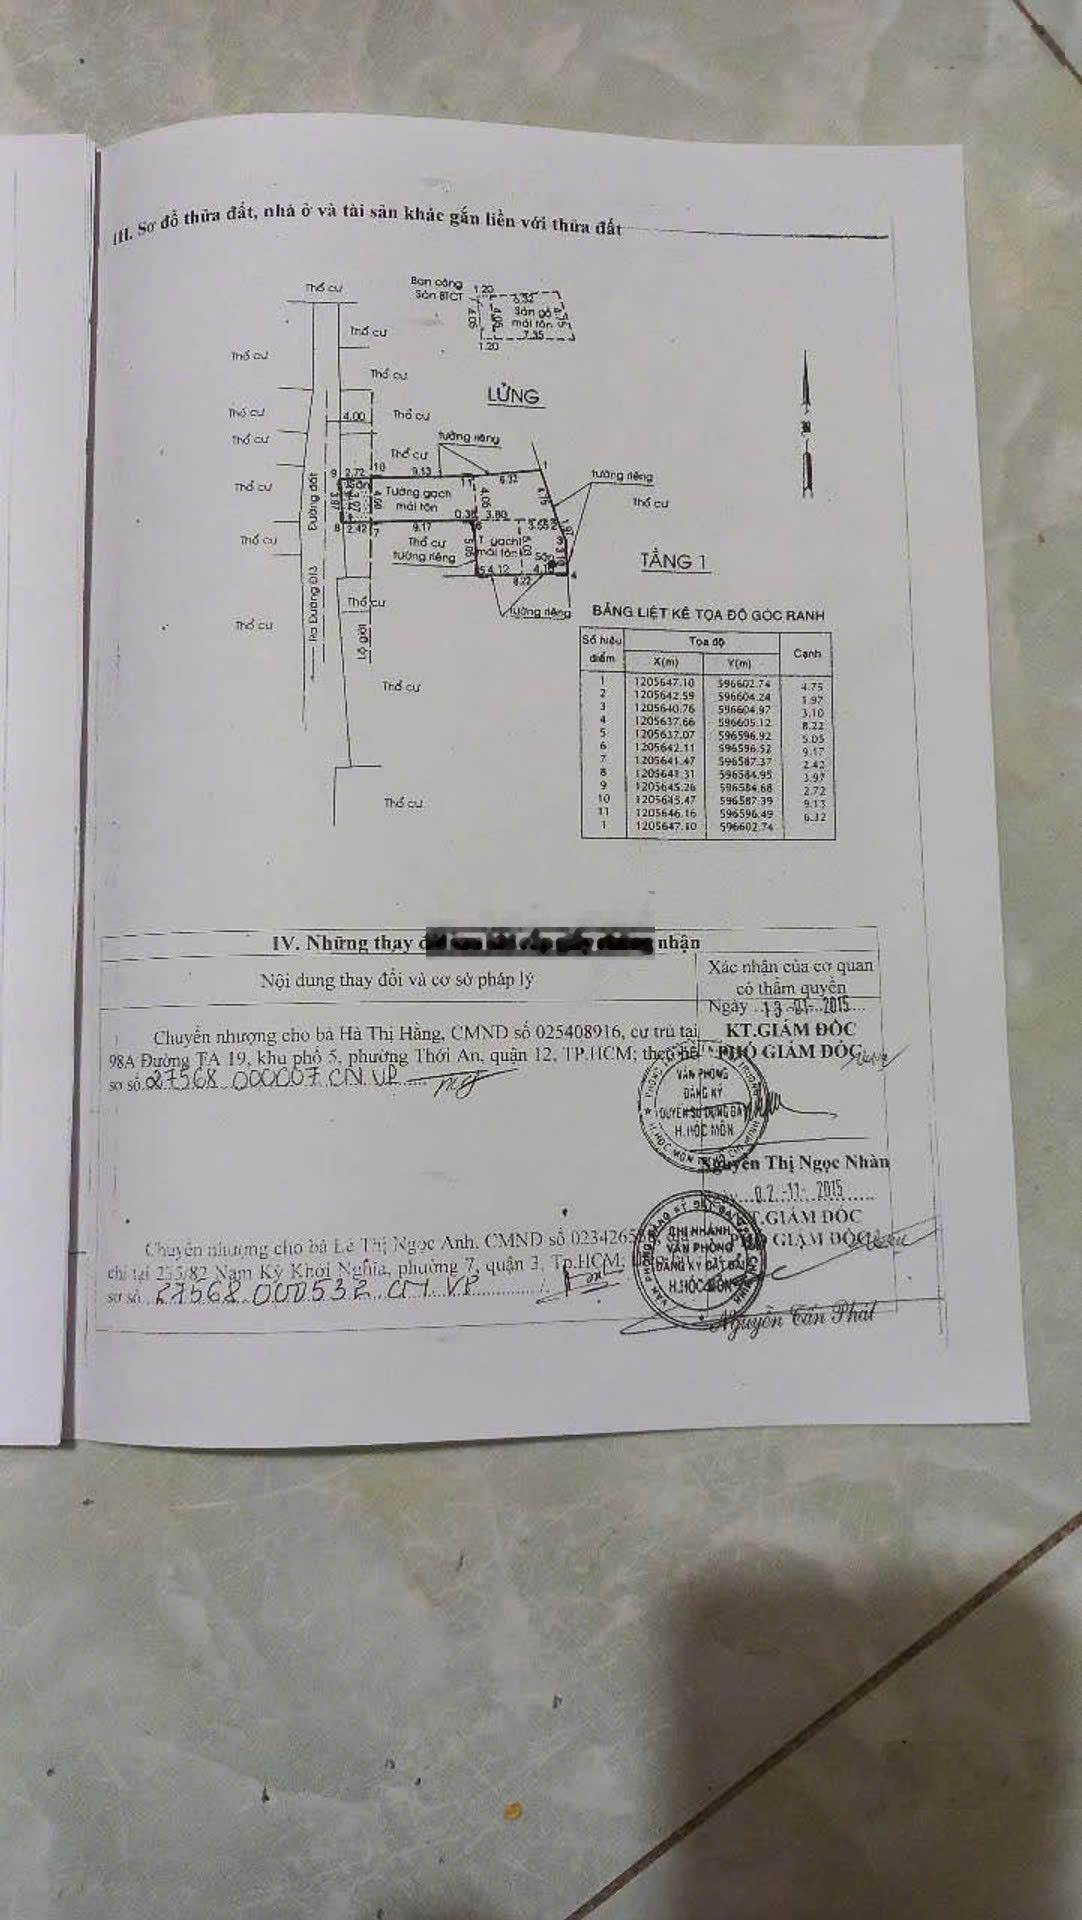 III. Sơ đồ thửa đất, nhà ở và tài sản khác gắn liền với thửa đất
Thổ cư
Ban công
Sàn BTCT
1.20
6.32
4.05
4.05
Sàn gỗ
mái tôn
7.35
1.20
Thổ cư
Thổ cư
Thổ cư
LỬNG
Thổ cư
4.00
Thổ cư
Thổ cư
tường riêng
Thổ cư
9
2.72
10
9.13
11
6.32
1
tường riêng
Thổ cư
Sân
3.97
3.97
4.68
Tường gạch
mái tôn
4.05
4.75
Thổ cư
Đường đất
8
2.42
7
9.17
0.38
6
3.80
3.55
2
1.97
Thổ cư
Thổ cư
tường riêng
5.05
T gạch
mái tôn
5.03
Sân
3
3.10
TẦNG 1
5
4.12
8.22
4.10
4
tường riêng
Ra Đường Đ13
Thổ cư
Thổ cư
Lộ giới
Thổ cư
Thổ cư
BẢNG LIỆT KÊ TỌA ĐỘ GÓC RANH
Số hiệu điểm Tọa độ Cạnh
X(m) Y(m)
1 1205647.10 596602.74 4.75
2 1205642.59 596604.24 1.97
3 1205640.76 596604.97 3.10
4 1205637.66 596605.12 8.22
5 1205637.07 596596.92 5.05
6 1205642.11 596596.52 9.17
7 1205641.47 596587.37 2.42
8 1205641.31 596584.95 3.97
9 1205645.26 596584.68 2.72
10 1205645.47 596587.39 9.13
11 1205646.16 596596.49 6.32
1 1205647.10 596602.74
IV. Những thay nhận
Nội dung thay đổi và cơ sở pháp lý
Xác nhận của cơ quan
có thẩm quyền
Chuyển nhượng cho bà Hà Thị Hằng, CMND số 025408916, cư trú tại
98A Đường TA 19, khu phố 5, phường Thới An, quận 12, TP.HCM; theo hồ
sơ số 27568.000007.CN.VP
Ngày 13-01-2015
KT.GIÁM ĐỐC
PHÓ GIÁM ĐỐC
VĂN PHÒNG
ĐĂNG KÝ
QUYỀN SỬ DỤNG ĐẤT
H.HÓC MÔN
Nguyễn Thị Ngọc Nhàn
Chuyển nhượng cho bà Lê Thị Ngọc Anh, CMND số 0234265
chỉ tại 255/82 Nam Kỳ Khởi Nghĩa, phường 7, quận 3, Tp.HCM;
sơ số 27568.000532.CN.VP
02-11-2015
KT.GIÁM ĐỐC
PHÓ GIÁM ĐỐC
CHI NHÁNH
VĂN PHÒNG
ĐĂNG KÝ ĐẤT ĐAI
H.HÓC MÔN
Nguyễn Tấn Phát